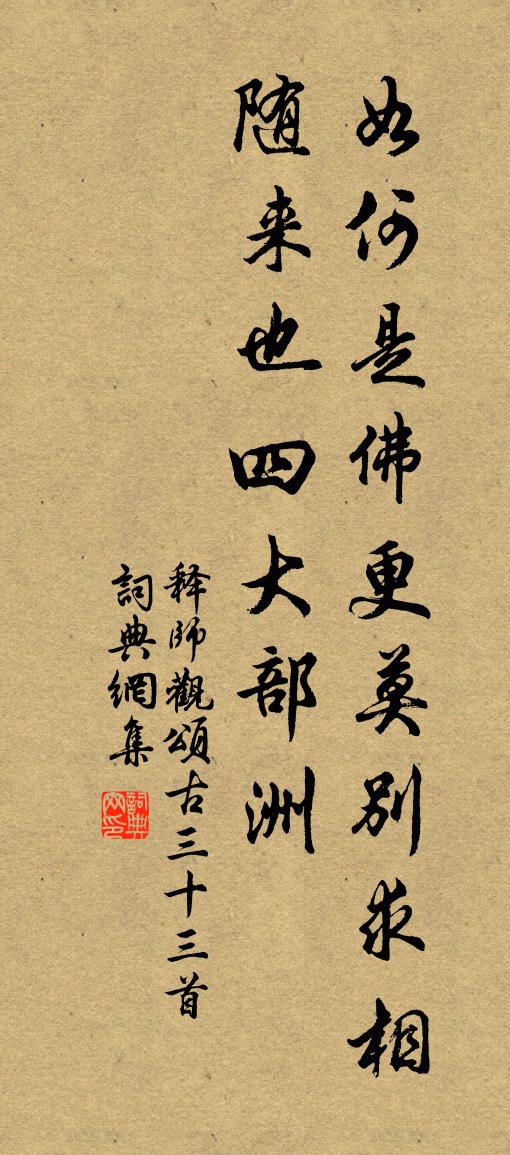 如何是佛更莫别求相
随来也四大部洲
释师觀頌古三十三首
詞典網集
詞典网印